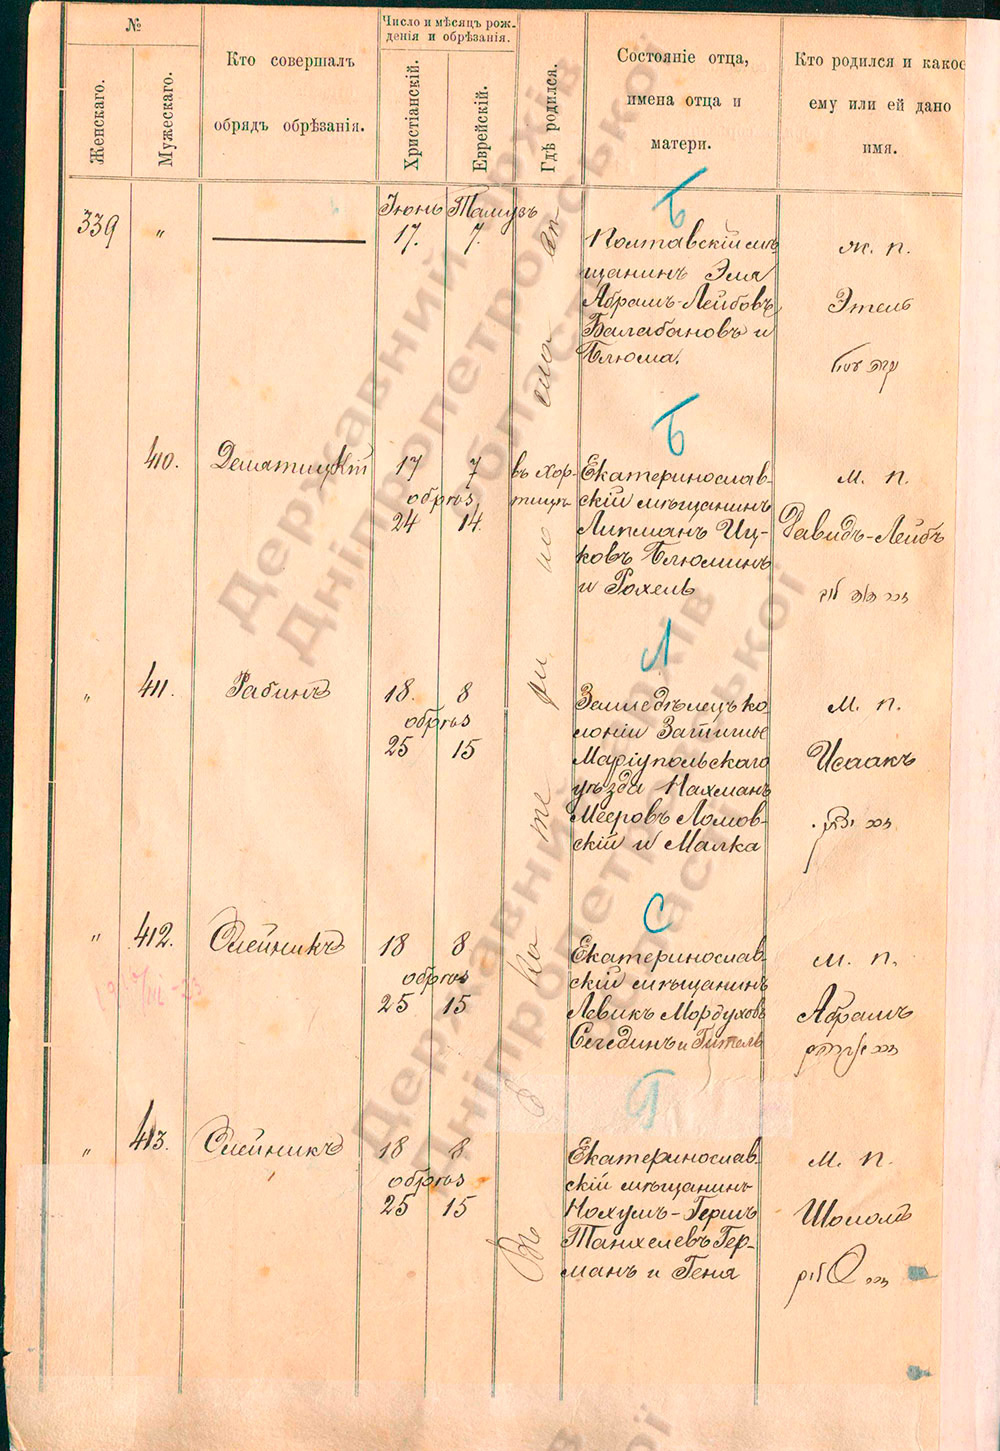 №
Женскаго.
Мужескаго.
Кто совершалъ
обрядъ обрѣзанія.
Число и мѣсяцъ рож-
денія и обрѣзанія.
Христіанскій.
Еврейскій.
Гдѣ родился.
Состояніе отца,
имена отца и
матери.
Кто родился и какое
ему или ей дано
имя.
Іюнь Тамузъ
Б
339 „ 17. 7.
Полтавскій мѣ-
щанинъ Эля
Абрамъ-Лейбовъ
Балабановъ и
Блюма.
ж. п.
Этель
Б
410. 17 7
обрѣз
24 14
въ Хор-
тицѣ
Екатеринослав-
скій мѣщанинъ
Липманъ Иц-
ковъ Блюминъ
и Рохель
м. п.
Давидъ-Лейбъ
Л
„ 411. Рабинъ 18. 8
обрѣз
25 15
Земледѣлецъ ко
лоніи Затишье
Маріупольскаго
уѣзда Нахманъ
Мееровъ Ломов-
скій и Малка
м. п.
Исаакъ
С
„ 412. Олейникъ 18 8
обрѣз
25 15
Екатеринослав-
скій мѣщанинъ
Левикъ Мордуховъ
Сегединъ и Гитель
м. п.
Абрамъ
Г
„ 413. Олейникъ 18 8
обрѣз
25 15
Екатеринослав-
скій мѣщанинъ
Нохумъ-Гершъ
Танхелевъ Гер-
манъ и Геня
м. п.
Шоломъ
Въ Екатеринославѣ
Державний архів
Дніпропетровської
області
Державний архів
Дніпропетровської
області